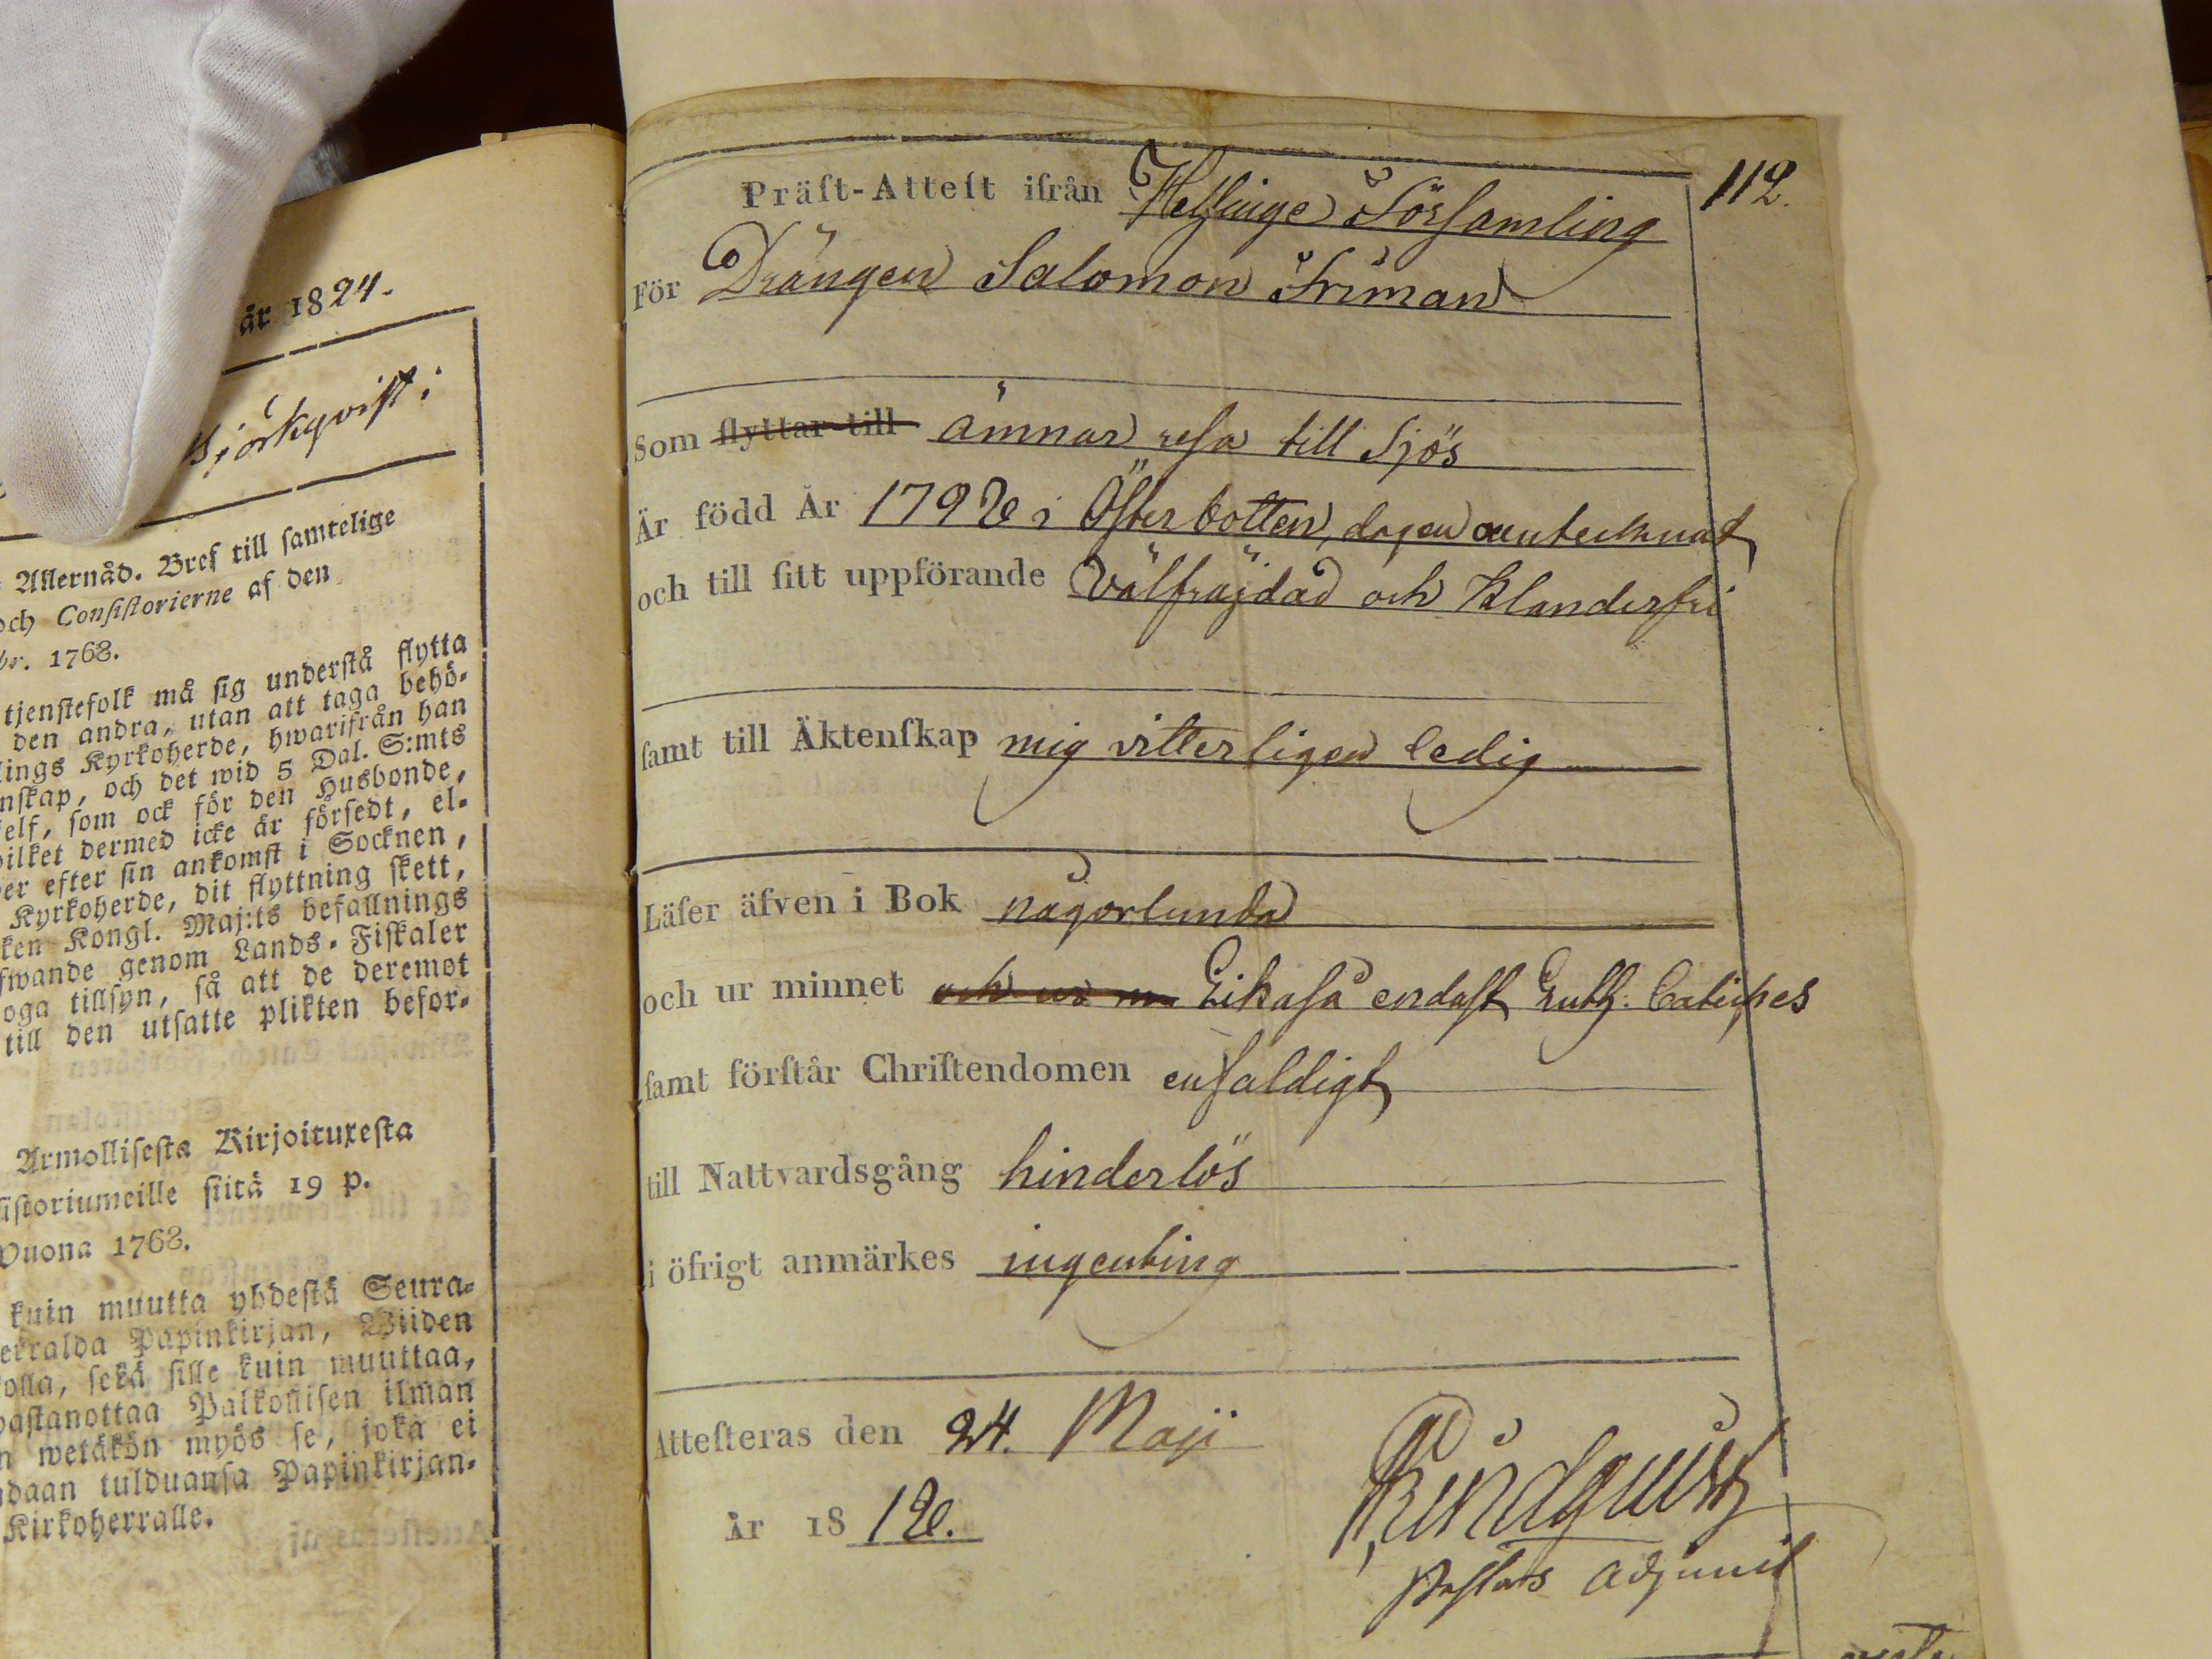 år 1824.
Björkqvist:
Allernåd. Bref till ſamtelige
och Conſiſtorierne af den
br. 1768.
tjenſtefolk må ſig underſtå flytta
den andra, utan att taga behö-
lings Kyrkoherde, hwarifrån han
nſkap, och det wid 5 Dal. S:mts
elf, ſom ock för den Husbonde,
vilket dermed icke är förſedt, el-
er efter ſin ankomſt i Socknen,
Kyrkoherde, dit flyttning ſkett,
ken Kongl. Maj:ts befallnings
fwande genom Lands-Fiſkaler
oga tillſyn, ſå att de deremot
till den utſatte plikten befor-
Armolliſeſta Kirjoituxeſta
ſiſtoriumeille ſiitä 19 p.
Vuona 1768.
kuin muutta yhdeſtä Seura-
erralda Papinkirjan, Wiiden
olla, ſekä ſille kuin muuttaa,
vaſtanottaa Palkolliſen ilman
n wetäkön myös ſe, joka ei
daan tulduanſa Papinkirjan-
Kirkoherralle.
112.
Präſt-Atteſt ifrån Helſinge Församling
För Drängen Salomon Friman
Som flyttar till ämnar reſa till Sjös
Är född År 1792 i Öſterbotten, dagen oantecknat
och till ſitt uppförande Välfräjdad och Klanderfri
ſamt till Äktenſkap mig vitterligen ledig
Läſer äfven i Bok någorlunda
och ur minnet och ur m Likaſå endaſt Luth. Catéches
ſamt förſtår Chriſtendomen enfaldigt
till Nattvardsgång hinderlös
i öfrigt anmärkes ingenting
Atteſteras den 24. Maji
År 18 12.
Paſtors Adjunct